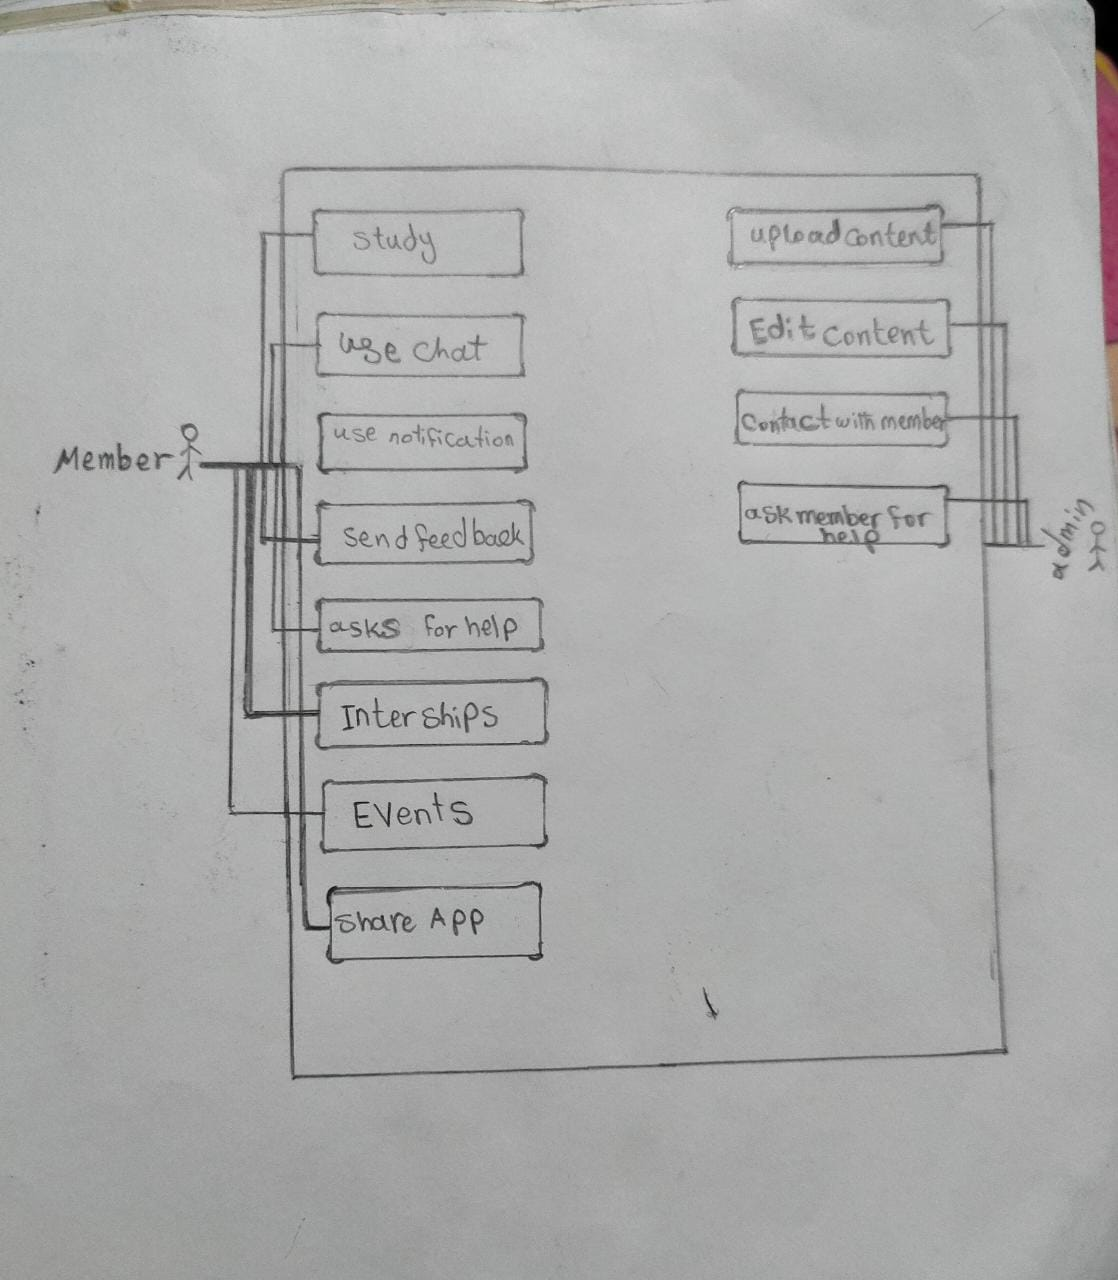 study
use chat
use notification
Member
send feedback
asks for help
Interships
Events
share App
upload content
Edit content
contact with member
ask member for
help
admin